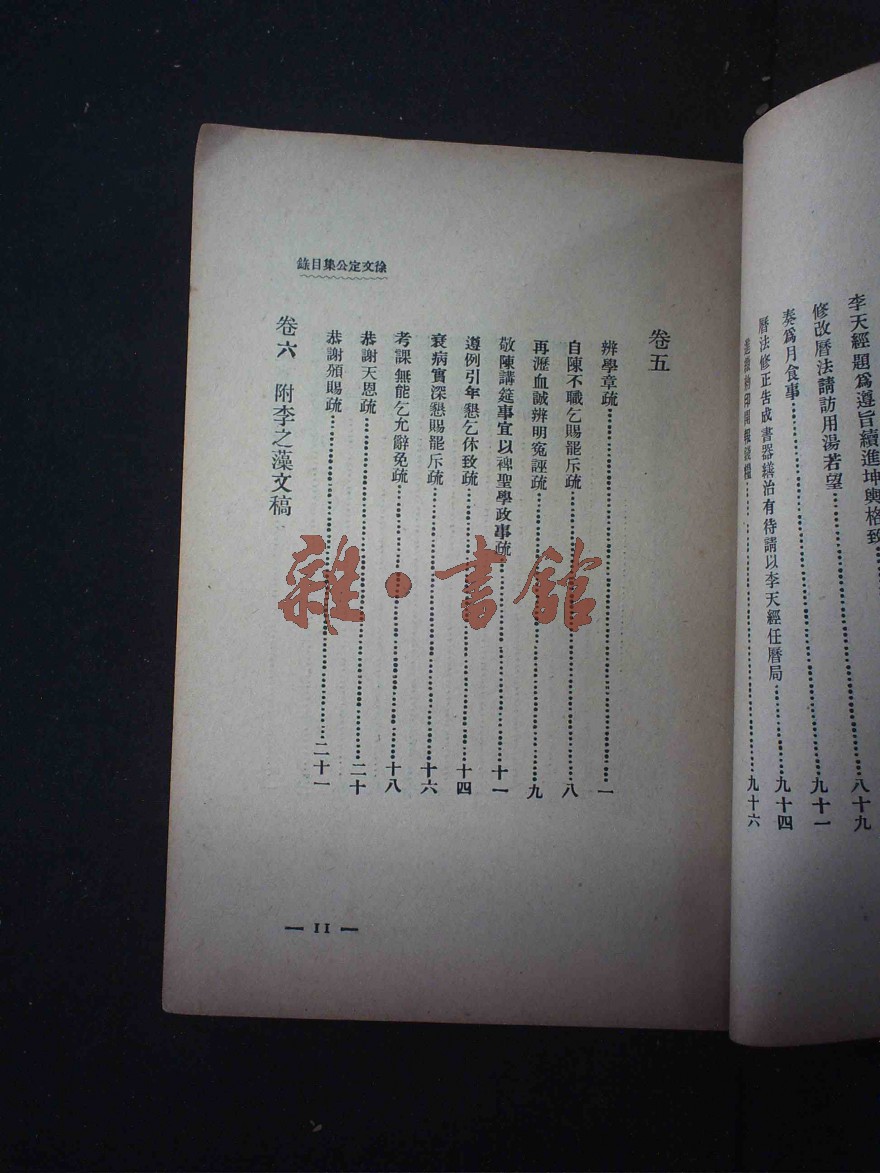 李天經題爲遵旨續進坤輿格致…八十九
修改曆法請訪用湯若望…九十一
奏爲月食事…九十四
曆法修正告成書器繕治有待請以李天經任曆局
…九十六
徐文定公集目錄
卷五
辨學章疏…一
自陳不職乞賜罷斥疏…八
再瀝血誠辨明冤誣疏…九
敬陳講筵事宜以裨聖學政事疏…十一
遵例引年懇乞休致疏…十四
衰病實深懇賜罷斥疏…十六
考課無能乞允辭免疏…十八
恭謝天恩疏…二十
恭謝頒賜疏…二十一
卷六 附李之藻文稿
— 11 —
雜·書館